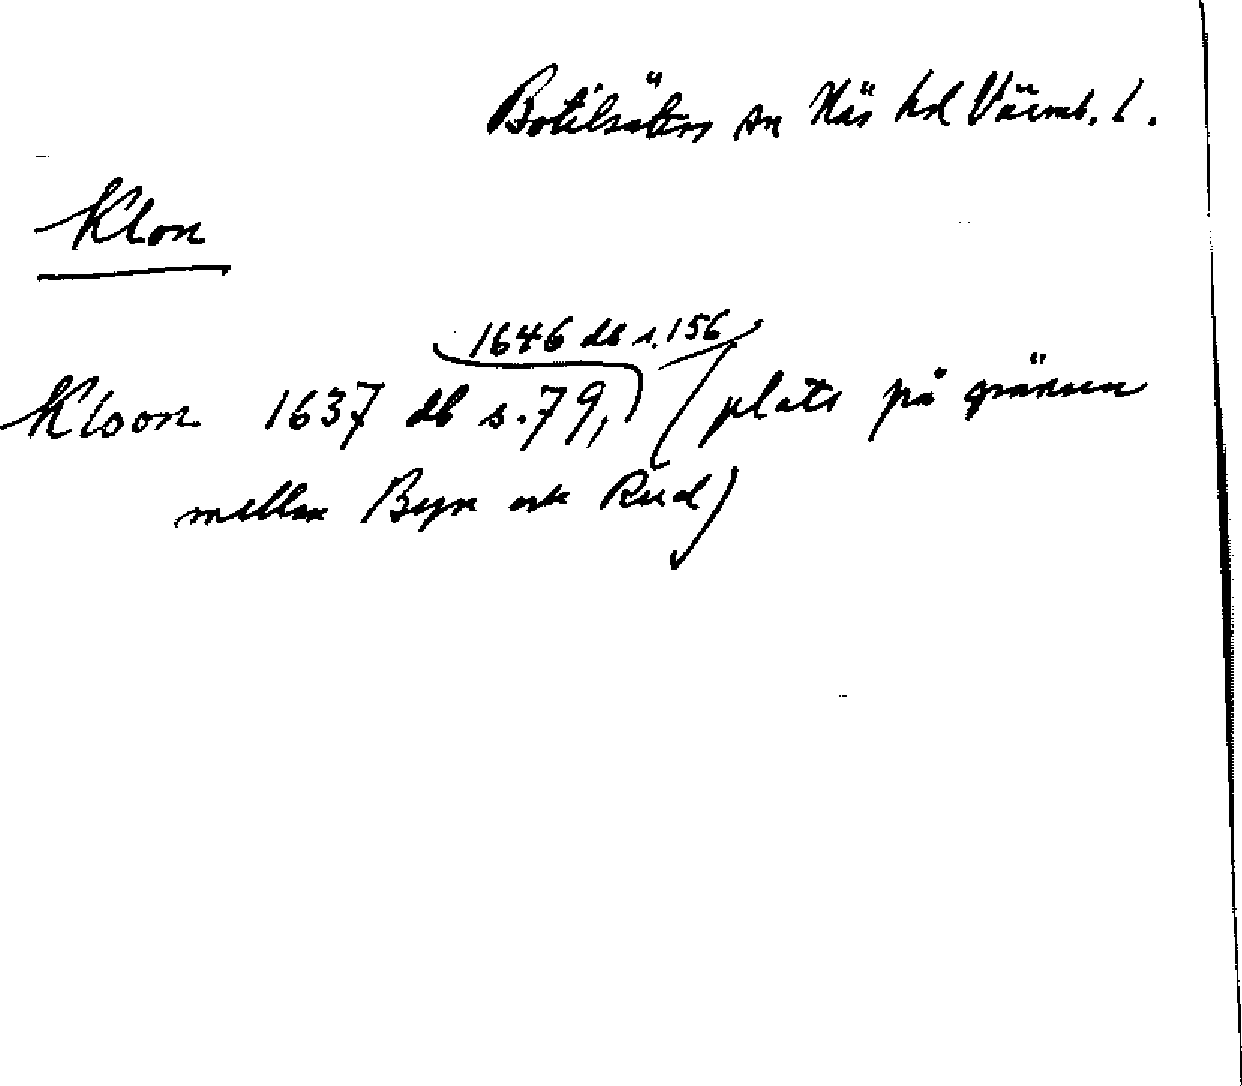 Botilsäters sn Näs hd Värml. l.
Klon
1646 db s. 156
Kloon 1637 db s. 79, (plats på gränsen
mellan Byn och Rud)